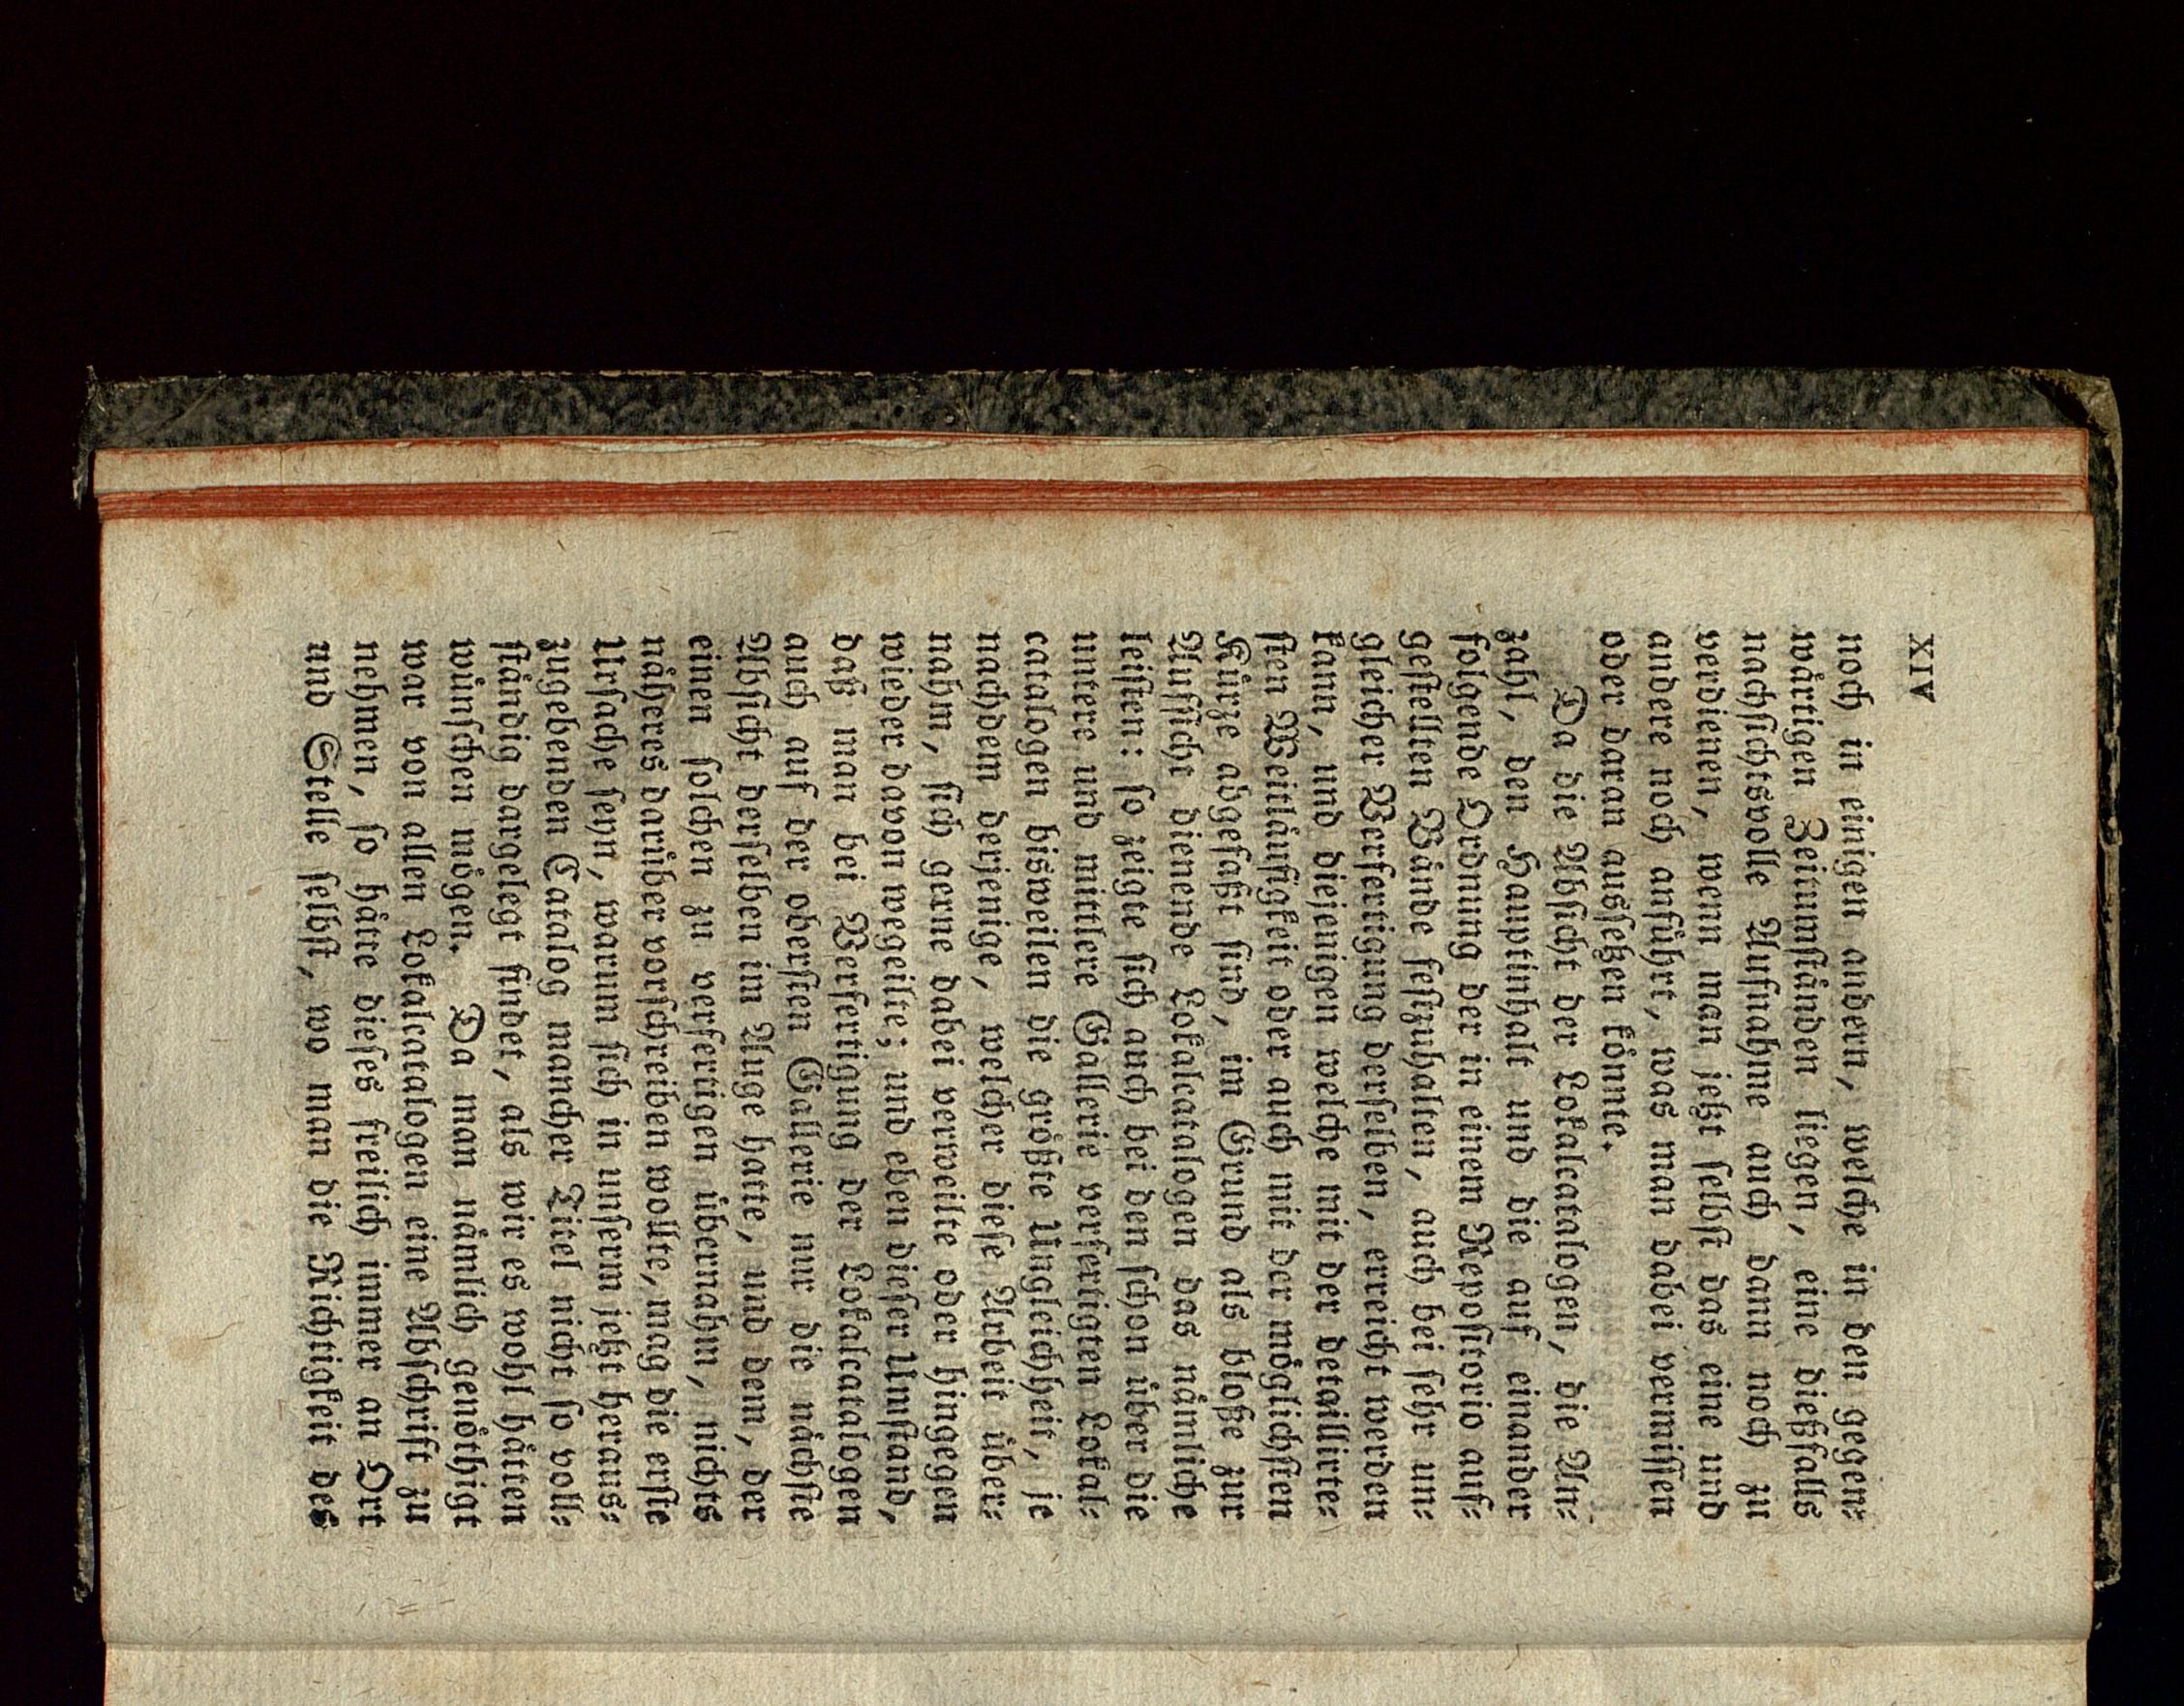 XIV
noch in einigen andern, welche in den gegen⸗
wärtigen Zeitumſtänden liegen, eine dießfalls
nachſichtsvolle Aufnahme auch dann noch zu
verdienen, wenn man jetzt ſelbſt das eine und
andere noch anführt, was man dabei vermiſſen
oder daran ausſetzen könnte.
Da die Abſicht der Lokalcatalogen, die An⸗
zahl, den Hauptinhalt und die auf einander
folgende Ordnung der in einem Repoſitorio auf⸗
geſtellten Bände feſtzuhalten, auch bei ſehr un⸗
gleicher Verfertigung derſelben, erreicht werden
kann, und diejenigen welche mit der detaillirte⸗
ſten Weitläufigkeit oder auch mit der möglichſten
Kürze abgefaßt ſind, im Grund als bloße zur
Aufſicht dienende Lokalcatalogen das nämliche
leiſten: ſo zeigte ſich auch bei den ſchon über die
untere und mittlere Gallerie verfertigten Lokal⸗
catalogen bisweilen die größte Ungleichheit, je
nachdem derjenige, welcher dieſe Arbeit über⸗
nahm, ſich gerne dabei verweilte oder hingegen
wieder davon wegeilte; und eben dieſer Umſtand,
daß man bei Verfertigung der Lokalcatalogen
auch auf der oberſten Gallerie nur die nächſte
Abſicht derſelben im Auge hatte, und dem, der
einen ſolchen zu verfertigen übernahm, nichts
näheres darüber vorſchreiben wollte, mag die erſte
Urſache ſeyn, warum ſich in unſerm jetzt heraus⸗
zugebenden Catalog mancher Titel nicht ſo voll⸗
ſtändig dargelegt findet, als wir es wohl hätten
wünſchen mögen. Da man nämlich genöthigt
war von allen Lokalcatalogen eine Abſchrift zu
nehmen, ſo hätte dieſes freilich immer an Ort
und Stelle ſelbſt, wo man die Richtigkeit des